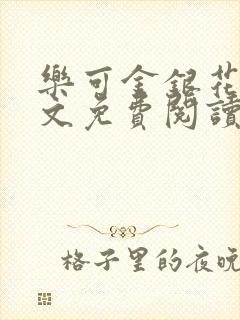 樂可金銀花
文免費閱讀
格子里的夜晚